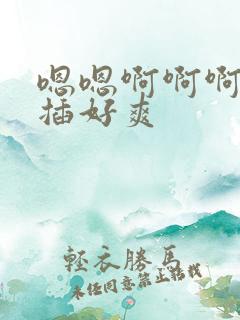 嗯嗯啊啊啊
插好爽
轻衣勝馬
未经同意禁止转载